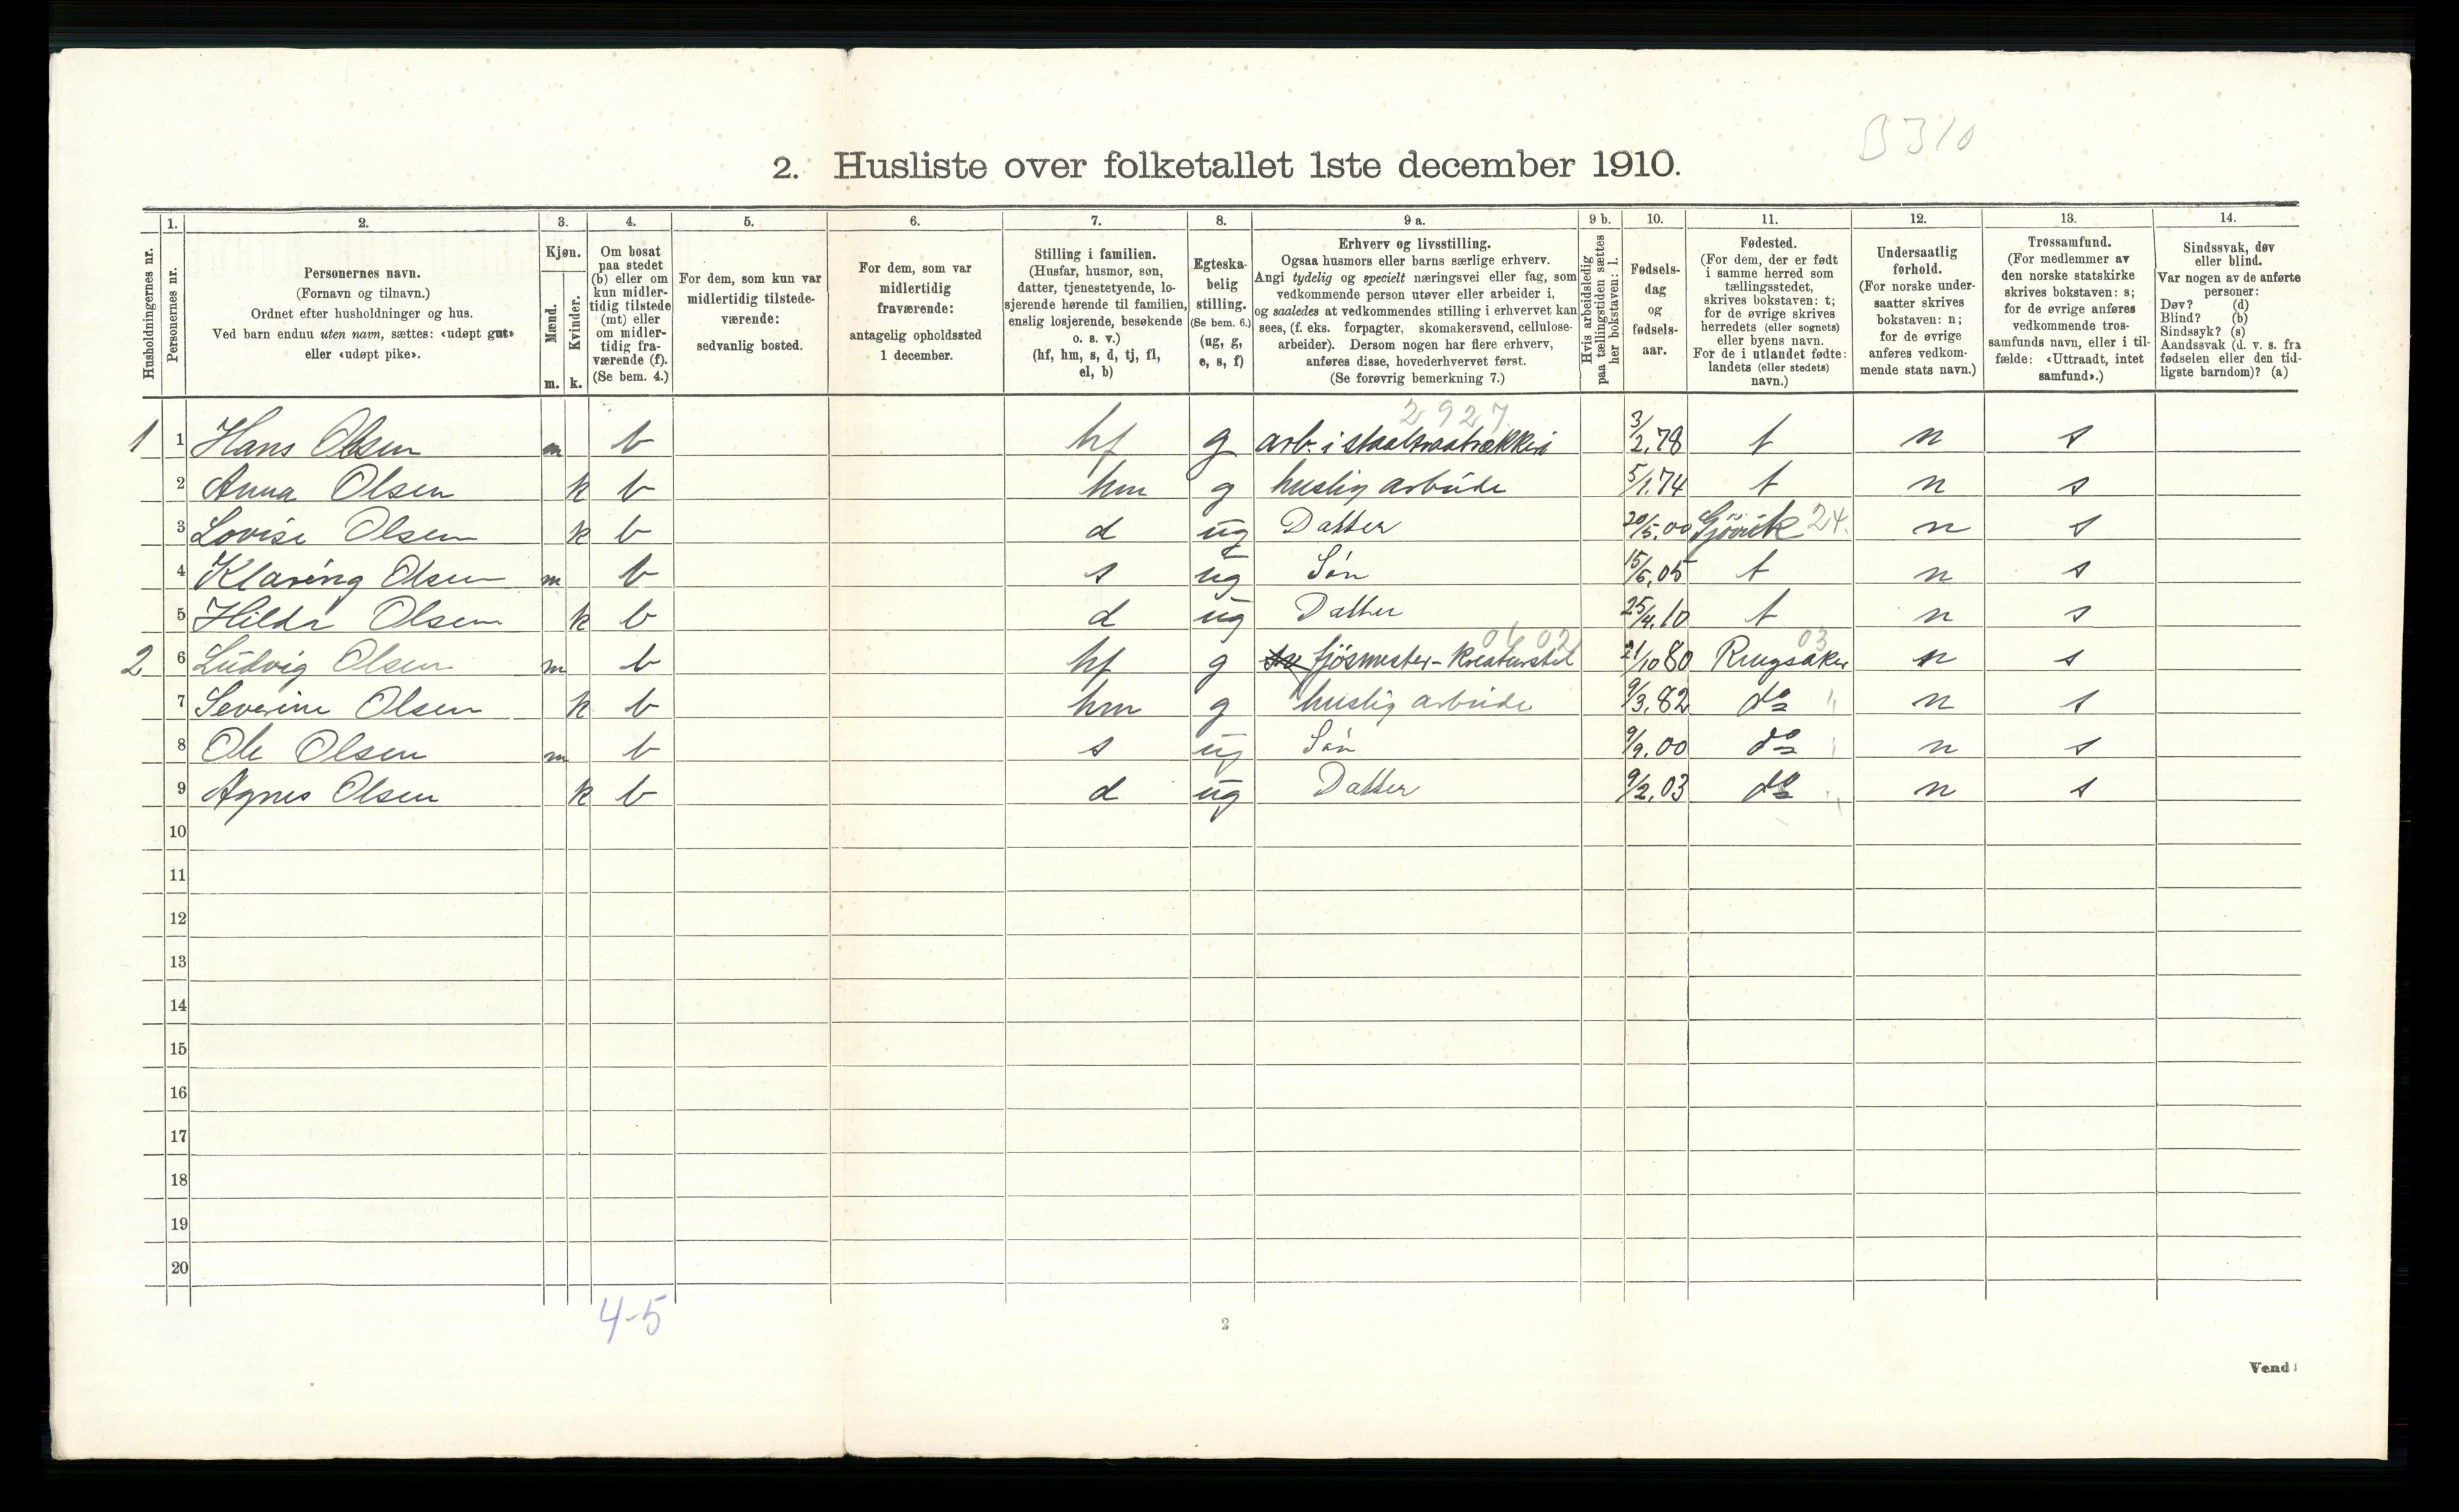 B 310
2. Husliste over folketallet 1ste december 1910.
Husholdningernes nr.
1.
Personernes nr.
2.
Personernes navn.
(Fornavn og tilnavn.)
Ordnet efter husholdninger og hus.
Ved barn endnu uten navn, sættes: «udøpt gut»
eller «udøpt pike».
3.
Kjøn.
Mænd.
m.
Kvinder.
k.
4.
Om bosat
paa stedet
(b) eller om
kun midler-
tidig tilstede
(mt) eller
om midler-
tidig fra-
værende (f).
(Se bem. 4.)
5.
For dem, som kun var
midlertidig tilstede-
værende:
sedvanlig bosted.
6.
For dem, som var
midlertidig
fraværende:
antagelig opholdssted
1 december.
7.
Stilling i familien.
(Husfar, husmor, søn,
datter, tjenestetyende, lo-
sjerende hørende til familien,
enslig losjerende, besøkende
o. s. v.)
(hf, hm, s, d, tj, fl,
el, b)
8.
Egteska-
belig
stilling.
(Se bem. 6.)
(ug, g,
e, s, f)
9 a.
Erhverv og livsstilling.
Ogsaa husmors eller barns særlige erhverv.
Angi tydelig og specielt næringsvei eller fag, som
vedkommende person utøver eller arbeider i,
og saaledes at vedkommendes stilling i erhvervet kan
sees, (f. eks. forpagter, skomakersvend, cellulose-
arbeider). Dersom nogen har flere erhverv,
anføres disse, hovederhvervet først.
(Se forøvrig bemerkning 7.)
9 b.
Hvis arbeidsledig
paa tællingstiden sættes
her bokstaven: l.
10.
Fødsels-
dag
og
fødsels-
aar.
11.
Fødested.
(For dem, der er født
i samme herred som
tællingsstedet,
skrives bokstaven: t;
for de øvrige skrives
herredets (eller sognets)
eller byens navn.
For de i utlandet fødte:
landets (eller stedets)
navn.)
12.
Undersaatlig
forhold.
(For norske under-
saatter skrives
bokstaven: n;
for de øvrige
anføres vedkom-
mende stats navn.)
13.
Trossamfund.
(For medlemmer av
den norske statskirke
skrives bokstaven: s;
for de øvrige anføres
vedkommende tros-
samfunds navn, eller i til-
fælde: «Uttraadt, intet
samfund».)
14.
Sindssvak, døv
eller blind.
Var nogen av de anførte
personer:
Døv? (d)
Blind? (b)
Sindssyk? (s)
Aandssvak (d. v. s. fra
fødselen eller den tid-
ligste barndom)? (a)
2927.
1 1 Hans Olsen m b hf g arb. i staaltraatrækkeri 3/2.78 t n s
2 Anna Olsen k b hm g huslig arbeide 5/1.74 t n s
3 Lovise Olsen k b d ug Datter 20/5.00 Gjövik 24. n s
4 Klaring Olsen m b s ug Sön 15/6.05 t n s
5 Hilda Olsen k b d ug Datter 25/4.10 t n s
0402 03
2 6 Ludvig Olsen m b hf g fjösmester - kreaturstel 21/10 80 Ringsaker n s
7 Severine Olsen k b hm g huslig arbeide 9/3.82 do " n s
8 Ole Olsen m b s ug Sön 9/9.00 do " n s
9 Agnes Olsen k b d ug Datter 9/2.03 do " n s
10
11
12
13
14
15
16
17
18
19
20
4-5
2
Vend!